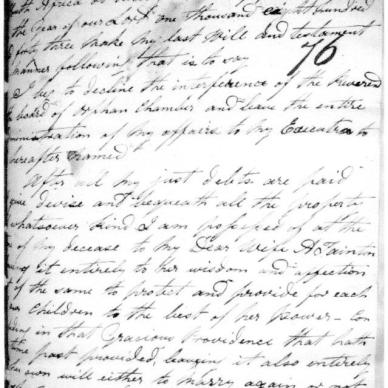 South Africa
the Year of our Lord one thousand eight hundred
& forty three make my last Will and Testament
manner following that is to say
76
I beg to decline the interference of the
board of Orphan Chamber and leave the entire
administration of my affairs to my Executors
hereafter named
After all my just debts are paid
give devise and bequeath all the property
whatsoever kind I am possessed of at the
of my decease to my Dear Wife A Tainton
it entirely to her wisdom and affection
of the same to protect and provide for each
our Children to the best of her power
in that Gracious Providence that hath
time past provided, leaving it also entirely
her own will either to marry again or not